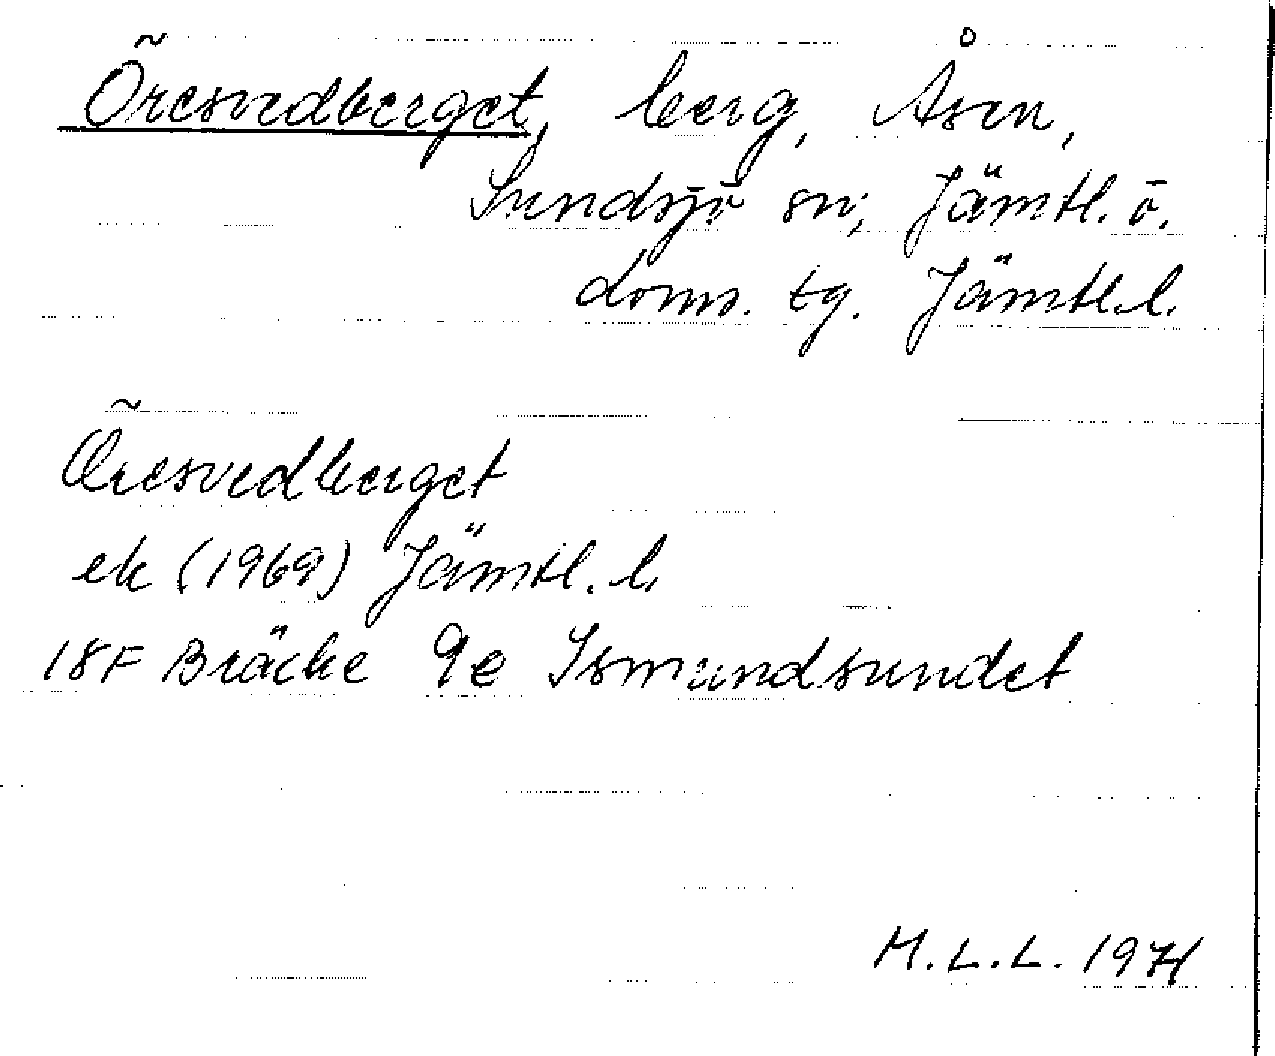 Öresvedberget, berg, Åsen,
Sundsjö sn, Jämtl. ö.
doms. tg. Jämtl. l.
Öresvedberget
ek (1969) Jämtl. l.
18F Bräcke 9e Ismundsundet
M.L.L. 1971